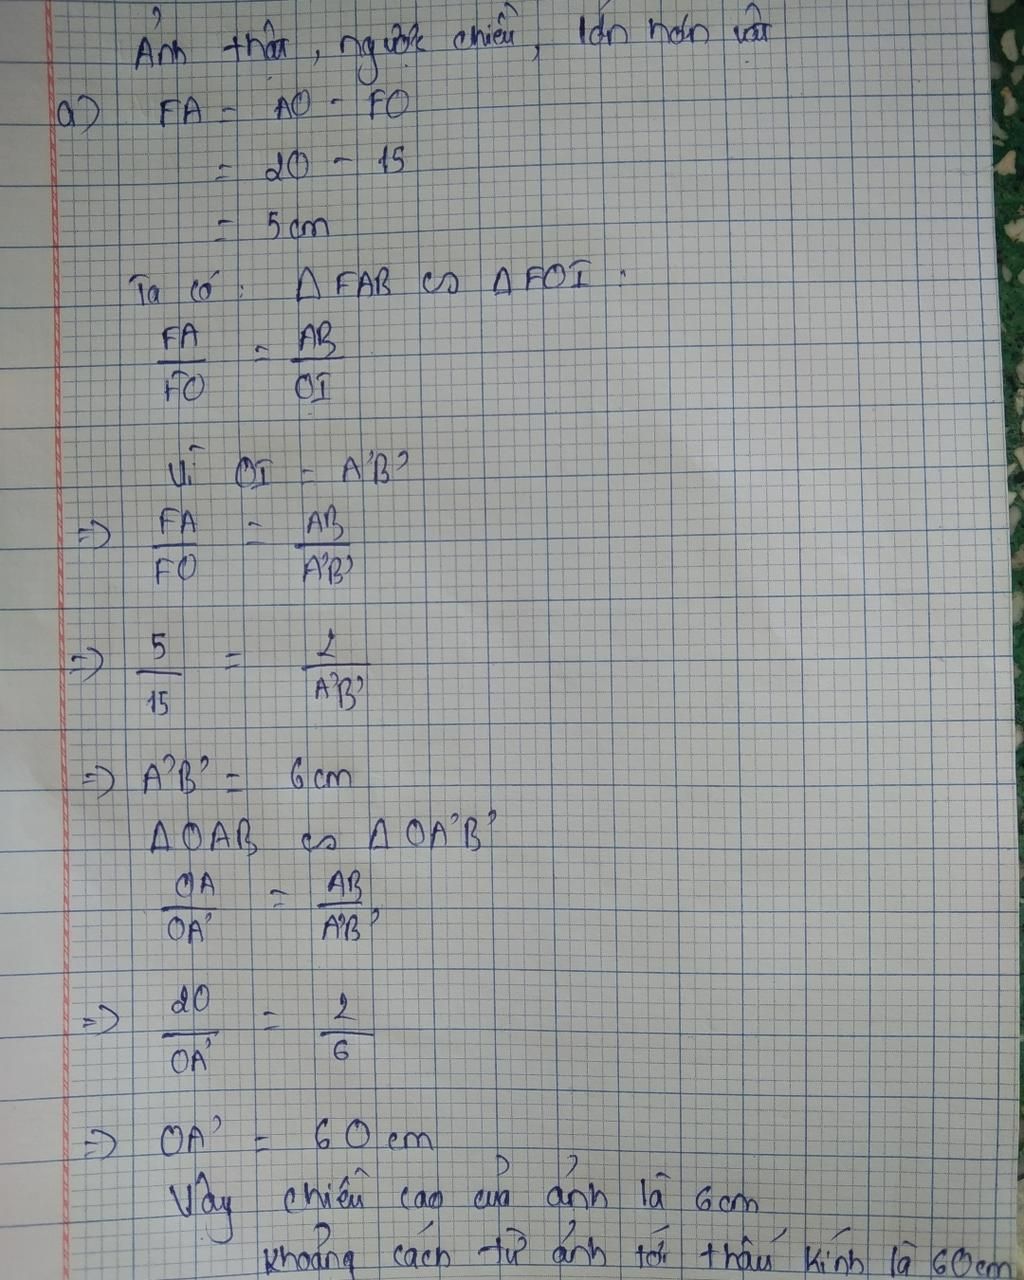 Ảnh thật, ngược chiều, lớn hơn vật
a) FA = AO - FO
= 20 - 15
= 5cm
Ta có: Δ FAB ∽ Δ FOI:
FA/FO = AB/OI
Vì OI = A'B'
=> FA/FO = AB/A'B'
=> 5/15 = 2/A'B'
=> A'B' = 6cm
Δ OAB ∽ Δ OA'B'
OA/OA' = AB/A'B'
=> 20/OA' = 2/6
=> OA' = 60 cm
Vậy chiều cao của ảnh là 6cm
khoảng cách từ ảnh tới thấu kính là 60cm